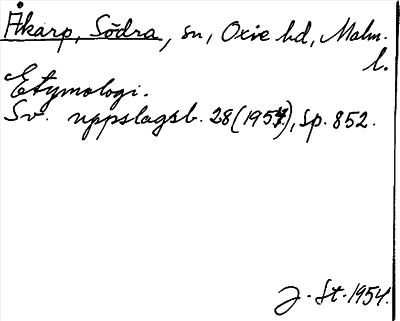 Åkarp, Södra, sn, Oxie hd, Malm.
l.
Etymologi.
Sv. uppslagsb. 28 (1954), sp. 852.
J. St. 1954.